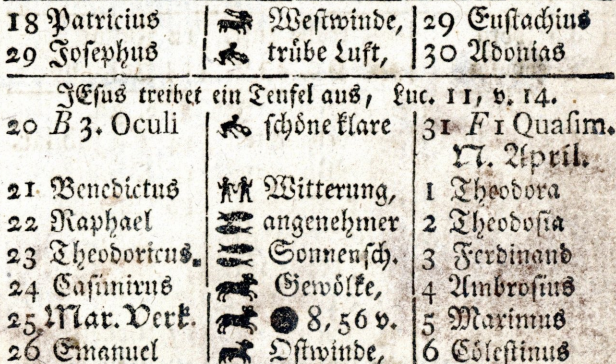 18 Patricius Westwinde, 29 Eustachius
29 Josephus trübe Luft, 30 Adonias
JEsus treibet ein Teufel aus, Luc. 11, v. 14.
20 B 3. Oculi schöne klare 31 F 1 Quasim.
N. April.
21 Benedictus Witterung, 1 Theodora
22 Raphael angenehmer 2 Theodosia
23 Theodoricus. Sonnensch. 3 Ferdinand
24 Casimirus Gewölke, 4 Ambrosius
25 Mar. Verk. 8, 56 v. 5 Maximus
26 Emanuel Ostwinde, 6 Cölestinus